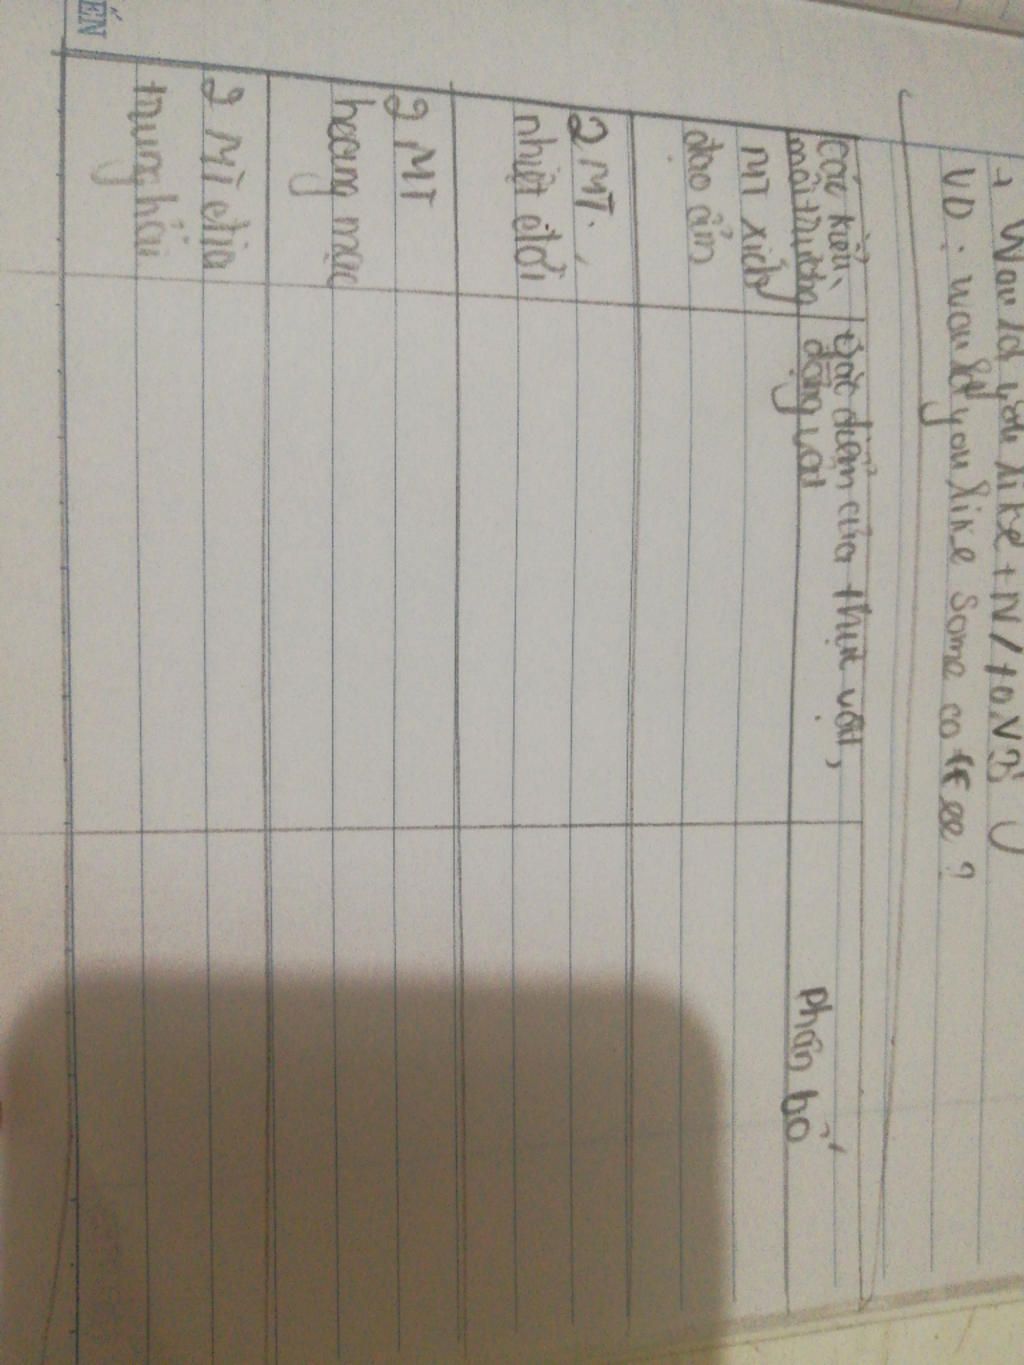 + Would you like + N / + o.V3
VD: Would you like some coffee?
Các kiểu môi trường
Đặc điểm của thực vật, động vật
Phân bố
MT xích đạo ẩm
2 MT. nhiệt đới
2 MT hoang mạc
2 MT địa trung hải
ẾN